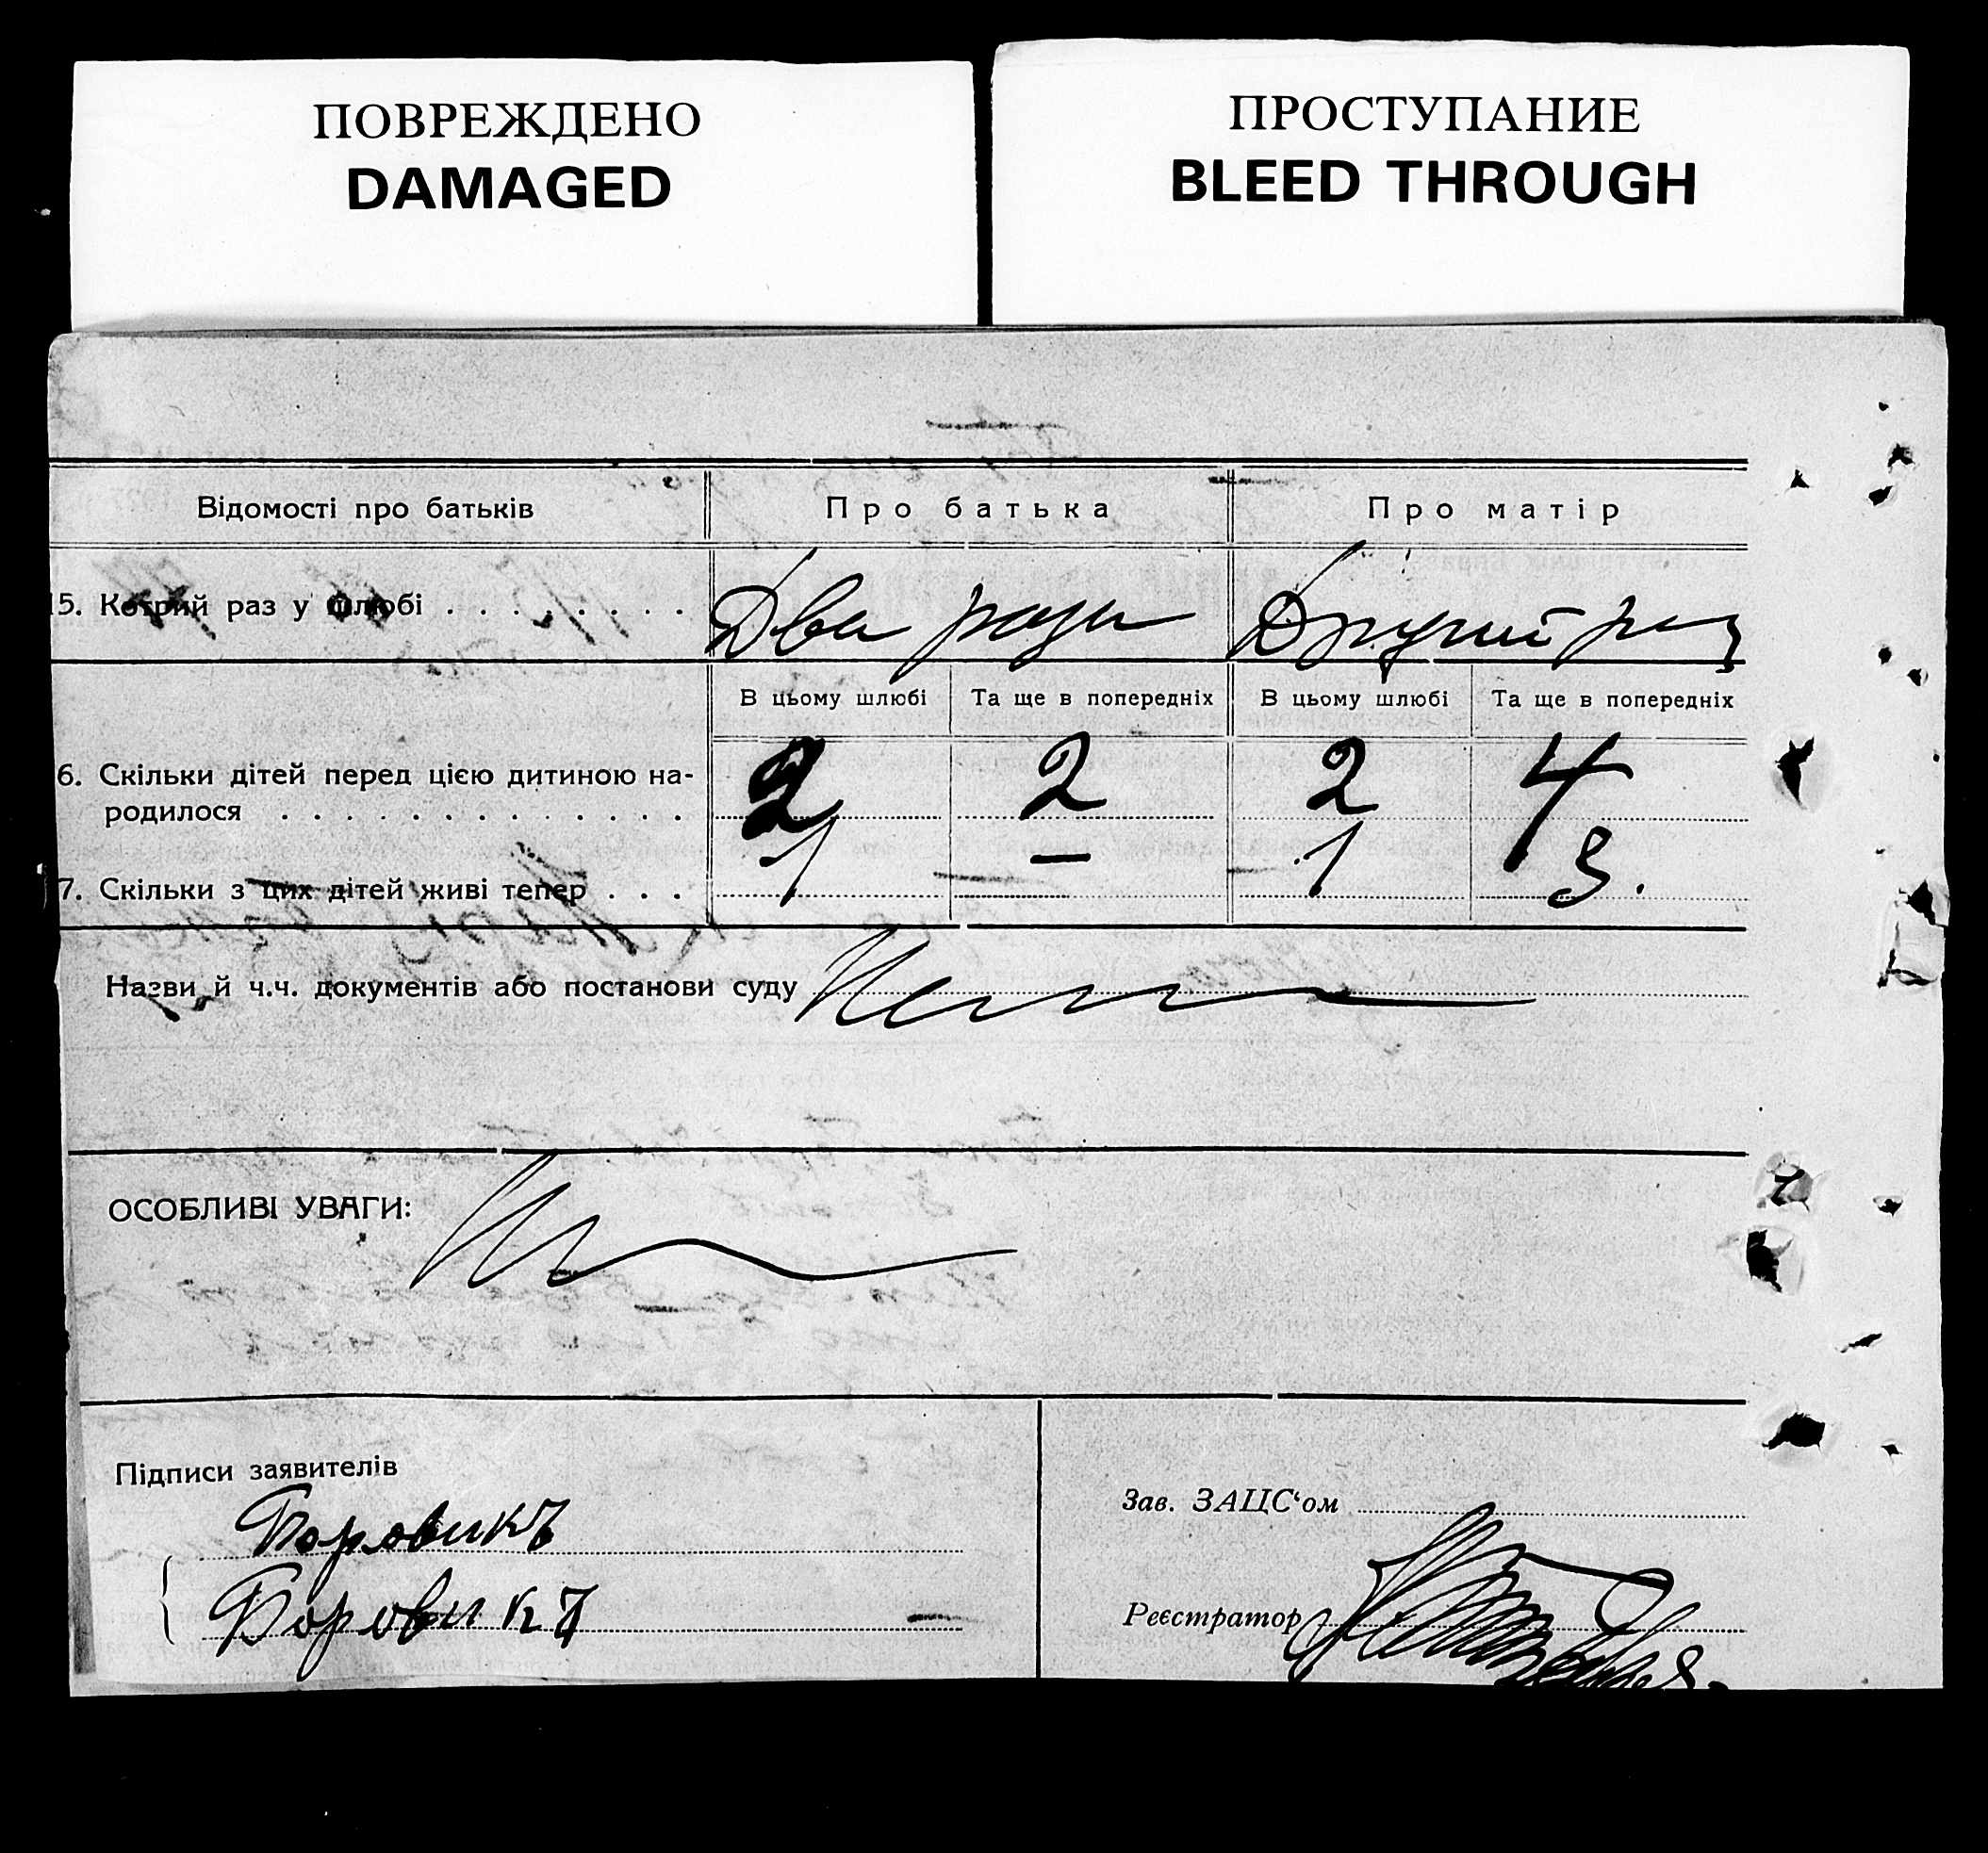 ПОВРЕЖДЕНО
DAMAGED
ПРОСТУПАНИЕ
BLEED THROUGH
Відомості про батьків
Про батька
Про матір
15. Котрий раз у шлюбі . . . . . . . .
Два рази
Другий раз
В цьому шлюбі
Та ще в попередніх
В цьому шлюбі
Та ще в попередніх
6. Скільки дітей перед цією дитиною на-
родилося . . . . . . . . . . . . .
2
2
2
4
7. Скільки з цих дітей живі тепер . . .
1
—
1
3.
Назви й ч.ч. документів або постанови суду
ОСОБЛИВІ УВАГИ:
Підписи заявителів
Боровикъ
Боровикъ
Зав. ЗАЦС‘ом
Реєстратор